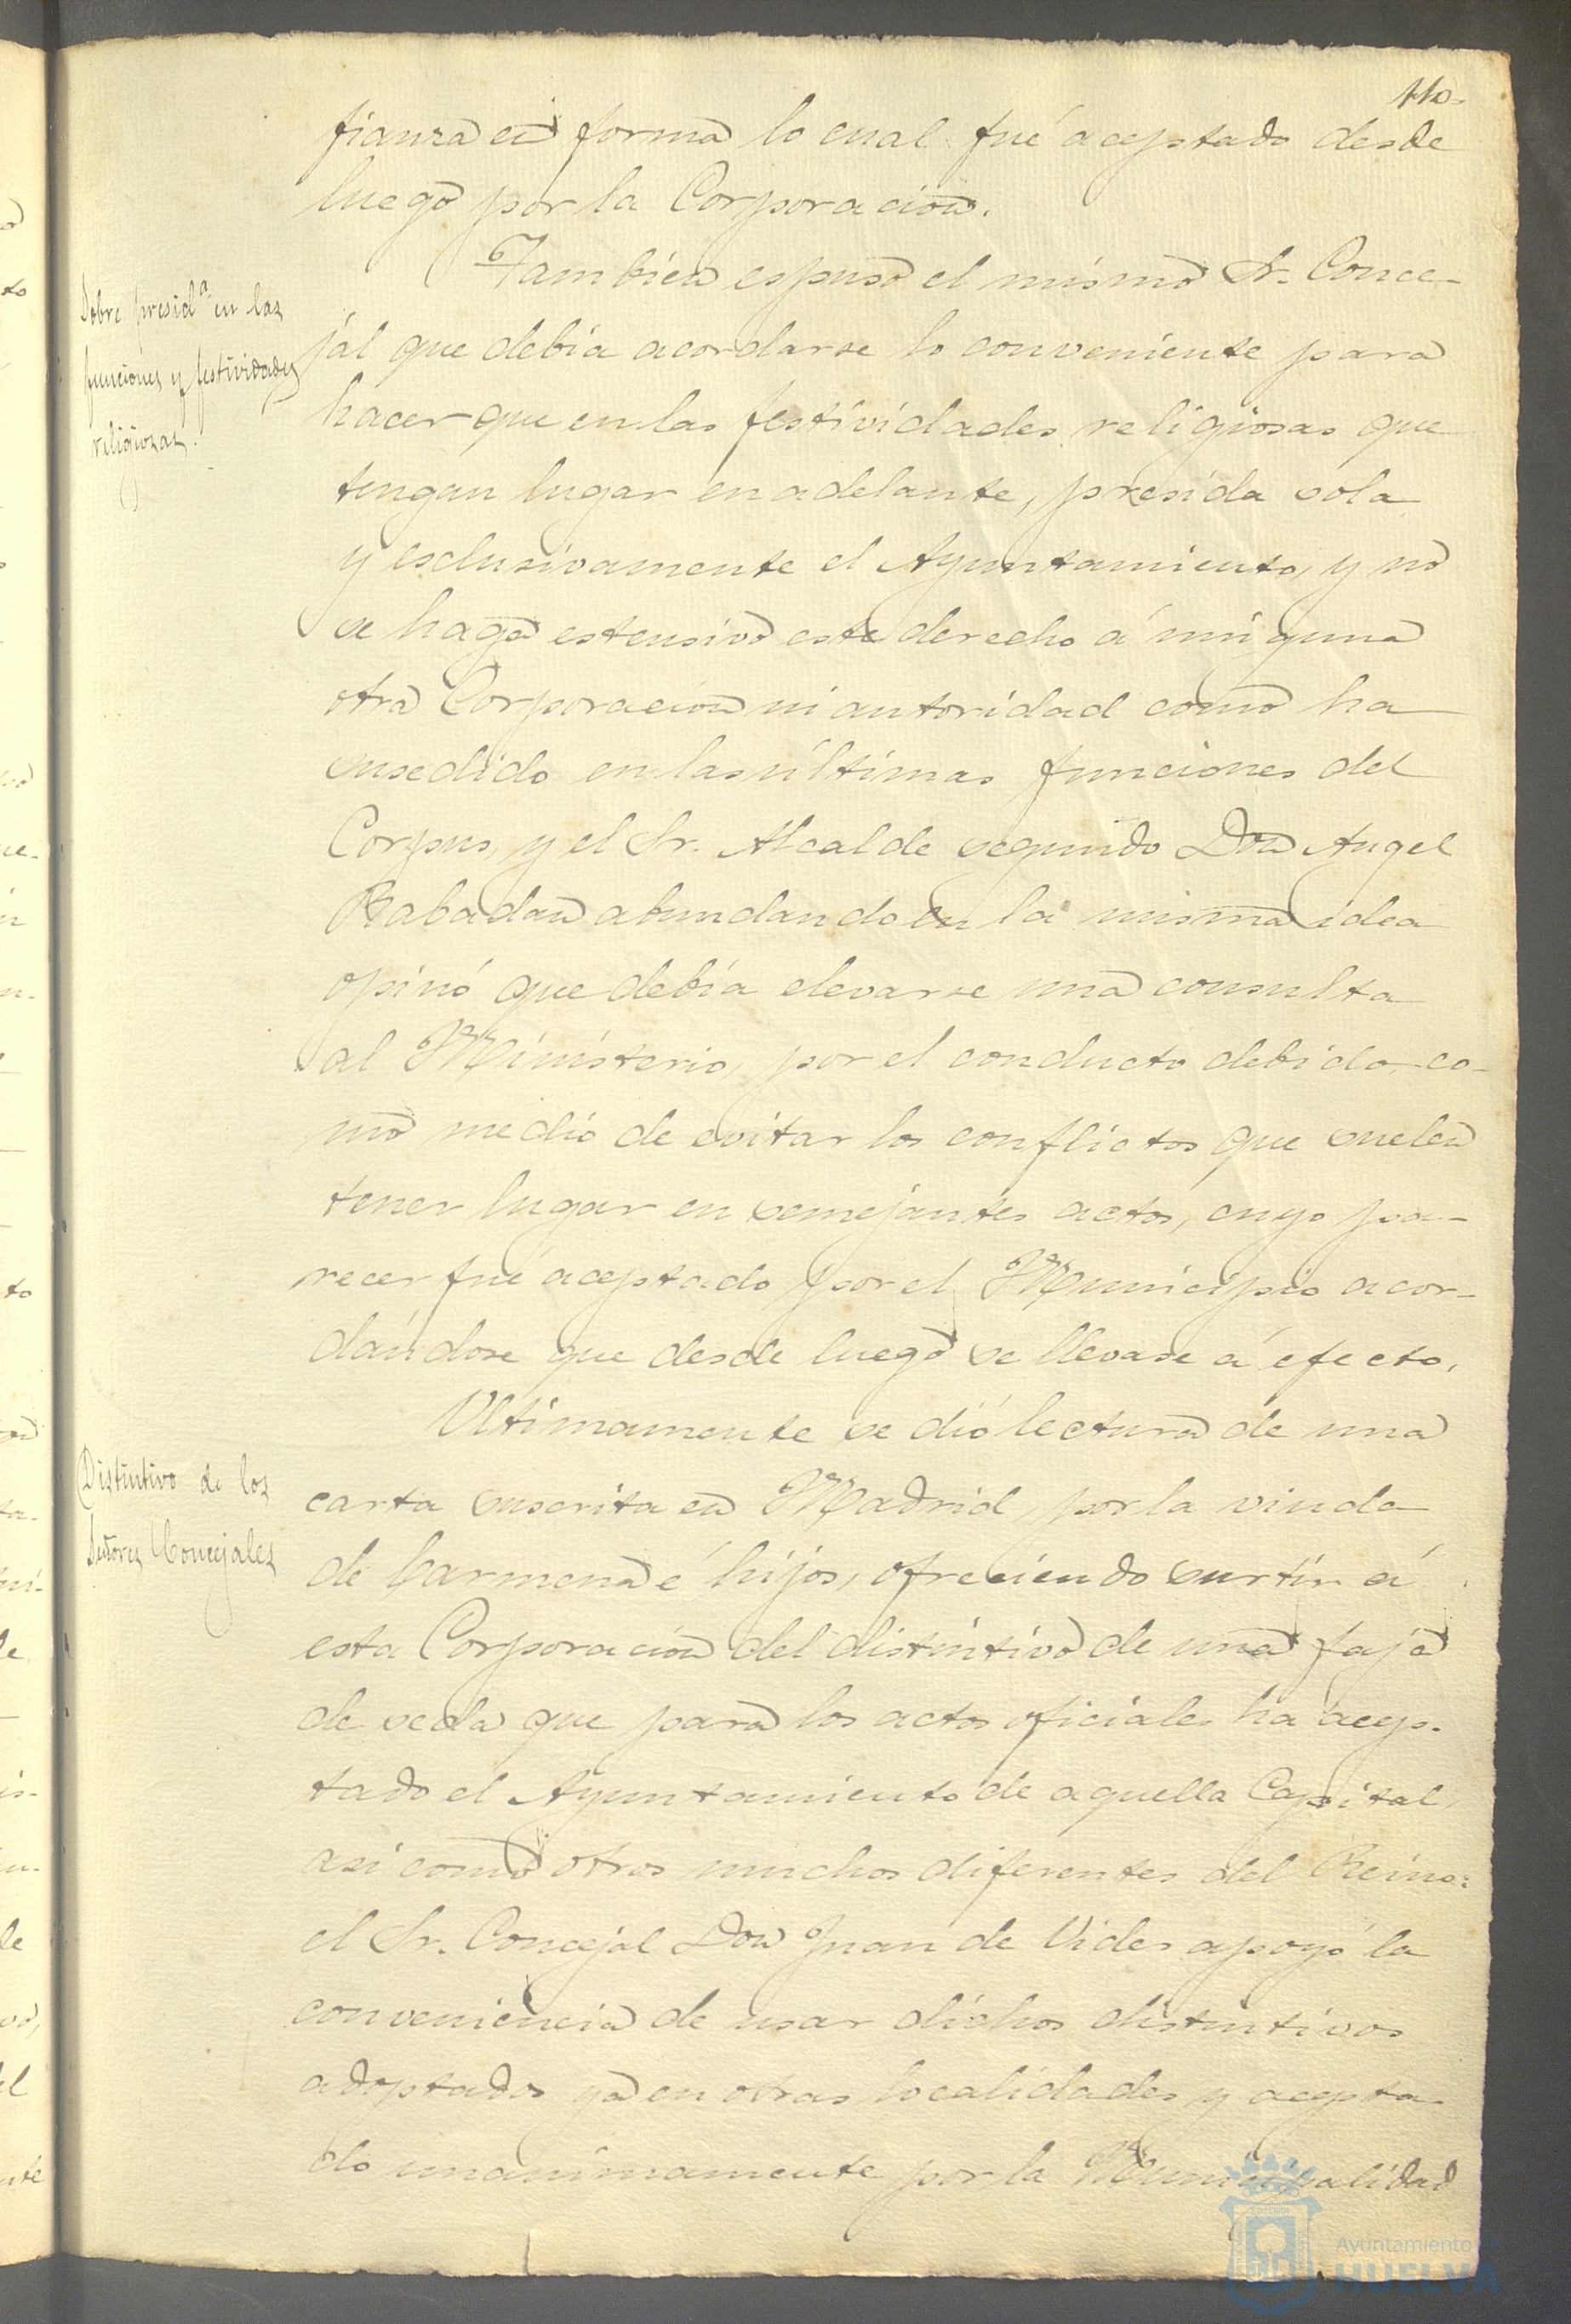 110.
fianza en forma lo cual fué aceptado desde
luego por la Corporacion.
Sobre presid.ª en las
funciones y festividades
religiosas.
Tambien espuso el mismo Sr. Conce-
jál que debía acordarse lo conveniente para
hacer que en las festividades religiosas que
tengan lugar en adelante, presida sola
y esclusivamente el Ayuntamiento, y no
se haga estensivo este derecho á ninguna
otra Corporacion ni autoridad como ha
susedido en las últimas funciones del
Corpus, y el Sr. Alcalde segundo Don Angel
Rabadan abundando en la misma idea
opinó que debía elevarse una consulta
al Ministerio, por el conducto debido, co-
mo medio de evitar los conflictos que suelen
tener lugar en semejantes actos, cuyo pa-
recer fué aceptado por el Municipio acor-
dándose que desde luego se llevase á efecto.
Distintivo de los
Señores Concejales
Ultimamente se dió lectura de una
carta suscrita en Madrid, por la viuda
de Carmena é hijos, ofreciendo surtir á
esta Corporacion del distintivo de una faja
de seda que para los actos oficiales ha acep-
tado el Ayuntamiento de aquella Capital,
asi como otros muchos diferentes del Reino:
el Sr. Concejal Don Juan de Vides apoyó la
conveniencia de usar dichos distintivos
adoptados ya en otras localidades y acepta-
do unanimamente por la Municipalidad
Ayuntamiento de
HUELVA